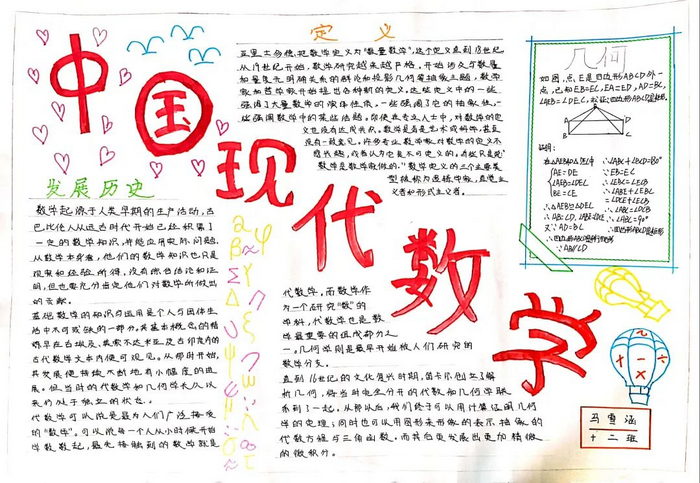 中国现代数学
定义
亚里士多德把数学定义为“数量数学”,这个定义直到18世纪。
从19世纪开始,数学研究越来越严格,开始涉及与数量
和量度无明确关系的群论和投影几何等抽象主题,数学
家和哲学家开始提出各种新的定义。这些定义中的一些
强调了大量数学的演绎性质,一些强调了它的抽象性,一
些强调数学中的某些话题。即使在专业人士中,对数学的定
义也没有达成共识。数学是否是艺术或科学,甚至
没有一致意见。许多专业数学家对数学的定义不
感兴趣,或者认为它是不可定义的。有些只是说“
数学是数学家做的。”数学定义的三个主要类
型被称为逻辑学家,直觉主
义者和形式主义者。
发展历史
数学起源于人类早期的生产活动,古
巴比伦人从远古时代开始已经积累了
一定的数学知识,并能应用实际问题.
从数学本身看,他们的数学知识也只是
观察和经验所得,没有综合结论和证
明,但也要充分肯定他们对数学所做出
的贡献.
基础数学的知识与运用是个人与团体生
活中不可或缺的一部分.其基本概念的精
炼早在古埃及、美索不达米亚及古印度内的
古代数学文本内便可观见。从那时开始,
其发展便持续不断地有小幅度的进
展。但当时的代数学和几何学长久以
来仍处于独立的状态.
代数学可以说是最为人们广泛接受
的“数学”。可以说每一个人从小时候开始
学数数起,最先接触到的数学就是
代数学。而数学作
为一个研究“数”的
学科,代数学也是数
学最重要的组成部分之
一。几何学则是最早开始被人们研究的
数学分支。
直到16世纪的文艺复兴时期,笛卡尔创立了解
析几何,将当时完全分开的代数和几何学联
系到了一起。从那以后,我们终于可以用计算证明几何
学的定理;同时也可以用图形来形象的表示抽象的
代数方程与三角函数。而其后更发展出更加精微
的微积分。
几何
如图,点E是四边形ABCD外一
点,已知EB=EC,EA=ED,AD=BC,
∠AEB=∠DEC,求证:四边形ABCD是矩形.
证明:
在△AEB和△DEC中
AE=DE
∠AEB=∠DEC
BE=CE
∴△AEB≌△DEC
∴AB=CD,∠ABE=∠DCE
又∵AD=BC
∴四边形ABCD是平行四边形
∴AB∥CD
∴∠ABC+∠DCB=180°
∵EB=EC
∴∠EBC=∠ECB
∴∠ABC=∠DCB
∴∠ABC=90°
∴四边形ABCD是矩形
马雪涵
十二班